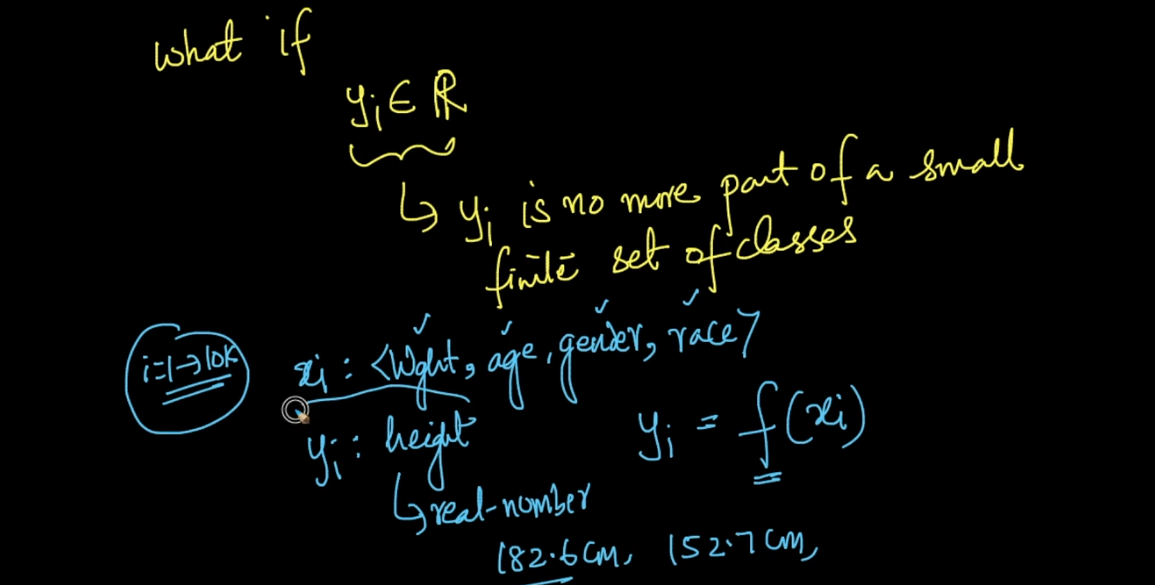 what if
yi ∈ ℝ
↳ yi is no more part of a small
finite set of classes
i=1→10K
xi : <Wght, age, gender, race>
yi : height
yi = f(xi)
↳ real-number
182.6 cm, 152.7 cm,